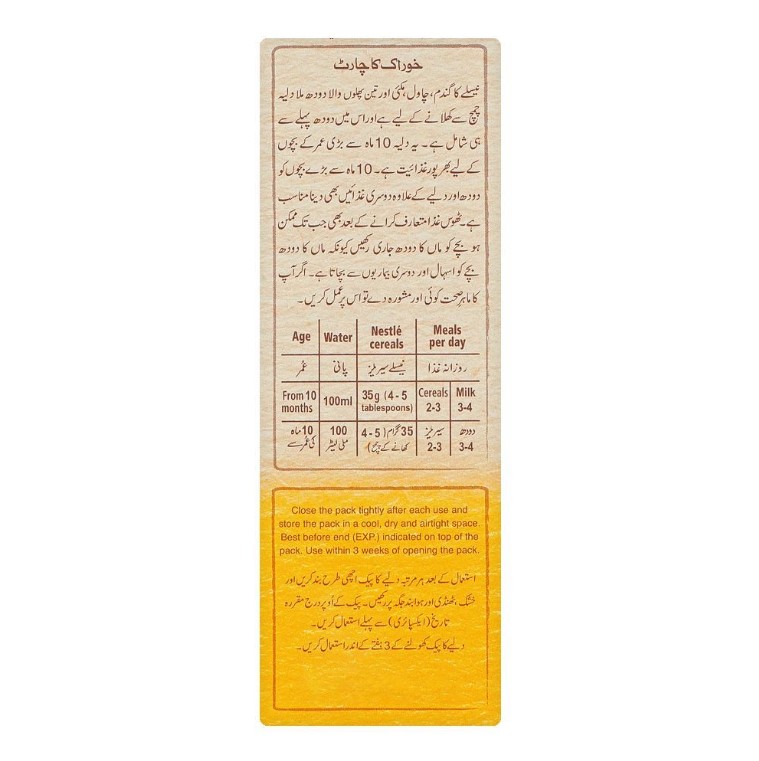 خوراک کا چارٹ
نیسلے کا گندم، چاول، مکئی اور تین پھلوں والا دودھ ملا دلیہ
چمچ سے کھلانے کے لیے ہے اور اس میں دودھ پہلے سے
ہی شامل ہے۔ یہ دلیہ 10 ماہ سے بڑی عمر کے بچوں
کے لیے بھرپور غذائیت ہے۔ 10 ماہ سے بڑے بچوں کو
دودھ اور دلیے کے علاوہ دوسری غذائیں بھی دینا مناسب
ہے۔ ٹھوس غذا متعارف کرانے کے بعد بھی جب تک ممکن
ہو بچے کو ماں کا دودھ جاری رکھیں کیونکہ ماں کا دودھ
بچے کو اسہال اور دوسری بیماریوں سے بچاتا ہے۔ اگر آپ
کا ماہر صحت کوئی اور مشورہ دے تو اس پر عمل کریں۔
Age Water Nestlé cereals Meals per day
عمر پانی نیسلے سیریلز روزانہ غذا
From 10 months 100ml 35g (4 - 5 tablespoons) Cereals 2-3 Milk 3-4
10 ماہ کی عمر سے 100 ملی لیٹر 35 گرام (5 - 4 کھانے کے چمچ) سیریلز 2-3 دودھ 3-4
Close the pack tightly after each use and
store the pack in a cool, dry and airtight space.
Best before end (EXP.) indicated on top of the
pack. Use within 3 weeks of opening the pack.
استعمال کے بعد ہر مرتبہ دلیے کا پیک اچھی طرح بند کریں اور
خشک، ٹھنڈی اور ہوا بند جگہ پر رکھیں۔ پیک کے اُوپر درج مقررہ
تاریخ (ایکسپائری) سے پہلے استعمال کریں۔
دلیے کا پیک کھولنے کے 3 ہفتے کے اندر استعمال کریں۔